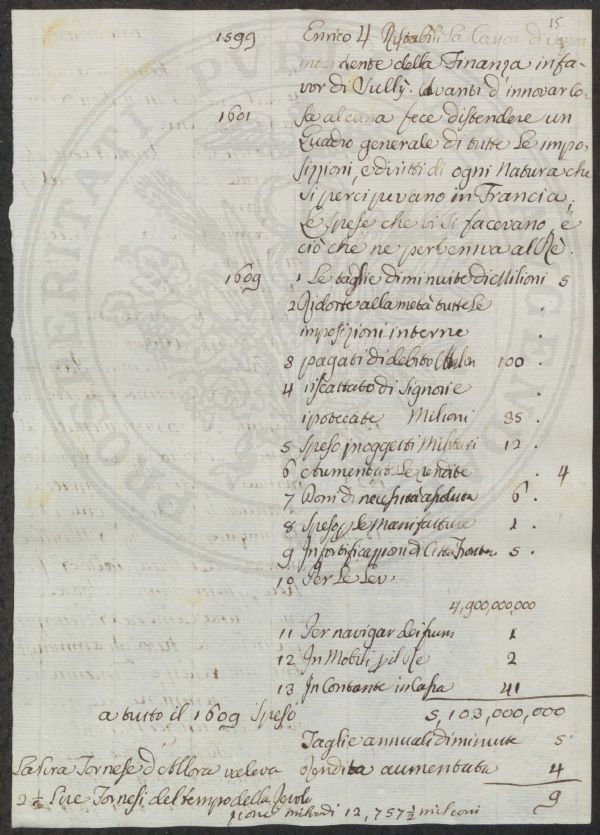 15
1599 Enrico 4 Ristabilì la Carica di Sopra
intendente della Finanza in fa-
vor di Sully. Avanti d'innovar co-
1601 sa alcuna fece distendere un
Quadro generale di tutte le impo-
sizzioni, e diritti di ogni Natura che
si percipevano in Francia,
le spese che vi si facevano, è
ciò che ne perveniva al Rè.
1609 1 Le taglie diminuite di Milioni 5
2 Ridotte alla metà tutte le
imposizioni interne .
3 pagati di debito 100 .
4 riscattato di Signorie
ipotecate Milioni 35 .
5 Speso in oggetti Militari 12 .
6 aumentate le rendite . 4
7 Doni di necessità assoluta 6 .
8 Speso p le manifatture 1 .
9 In fortificazzioni di Città 5 .
10 Per le
4,900,000,000
11 Per navigar dei fiumi 1
12 In Mobili p il Re 2
13 In Contante in Cassa 41
a tutto il 1609 Speso 5,103,000,000
Taglie annuali diminuite 5
Rendita aumentata 4
9
La lira Tornese d'Allora valeva
2 ½ Lire Tornesi del tempo della
zione miliardi 12,757 ½ milioni
PROSPERITATI PVBLICAE AVGENDAE